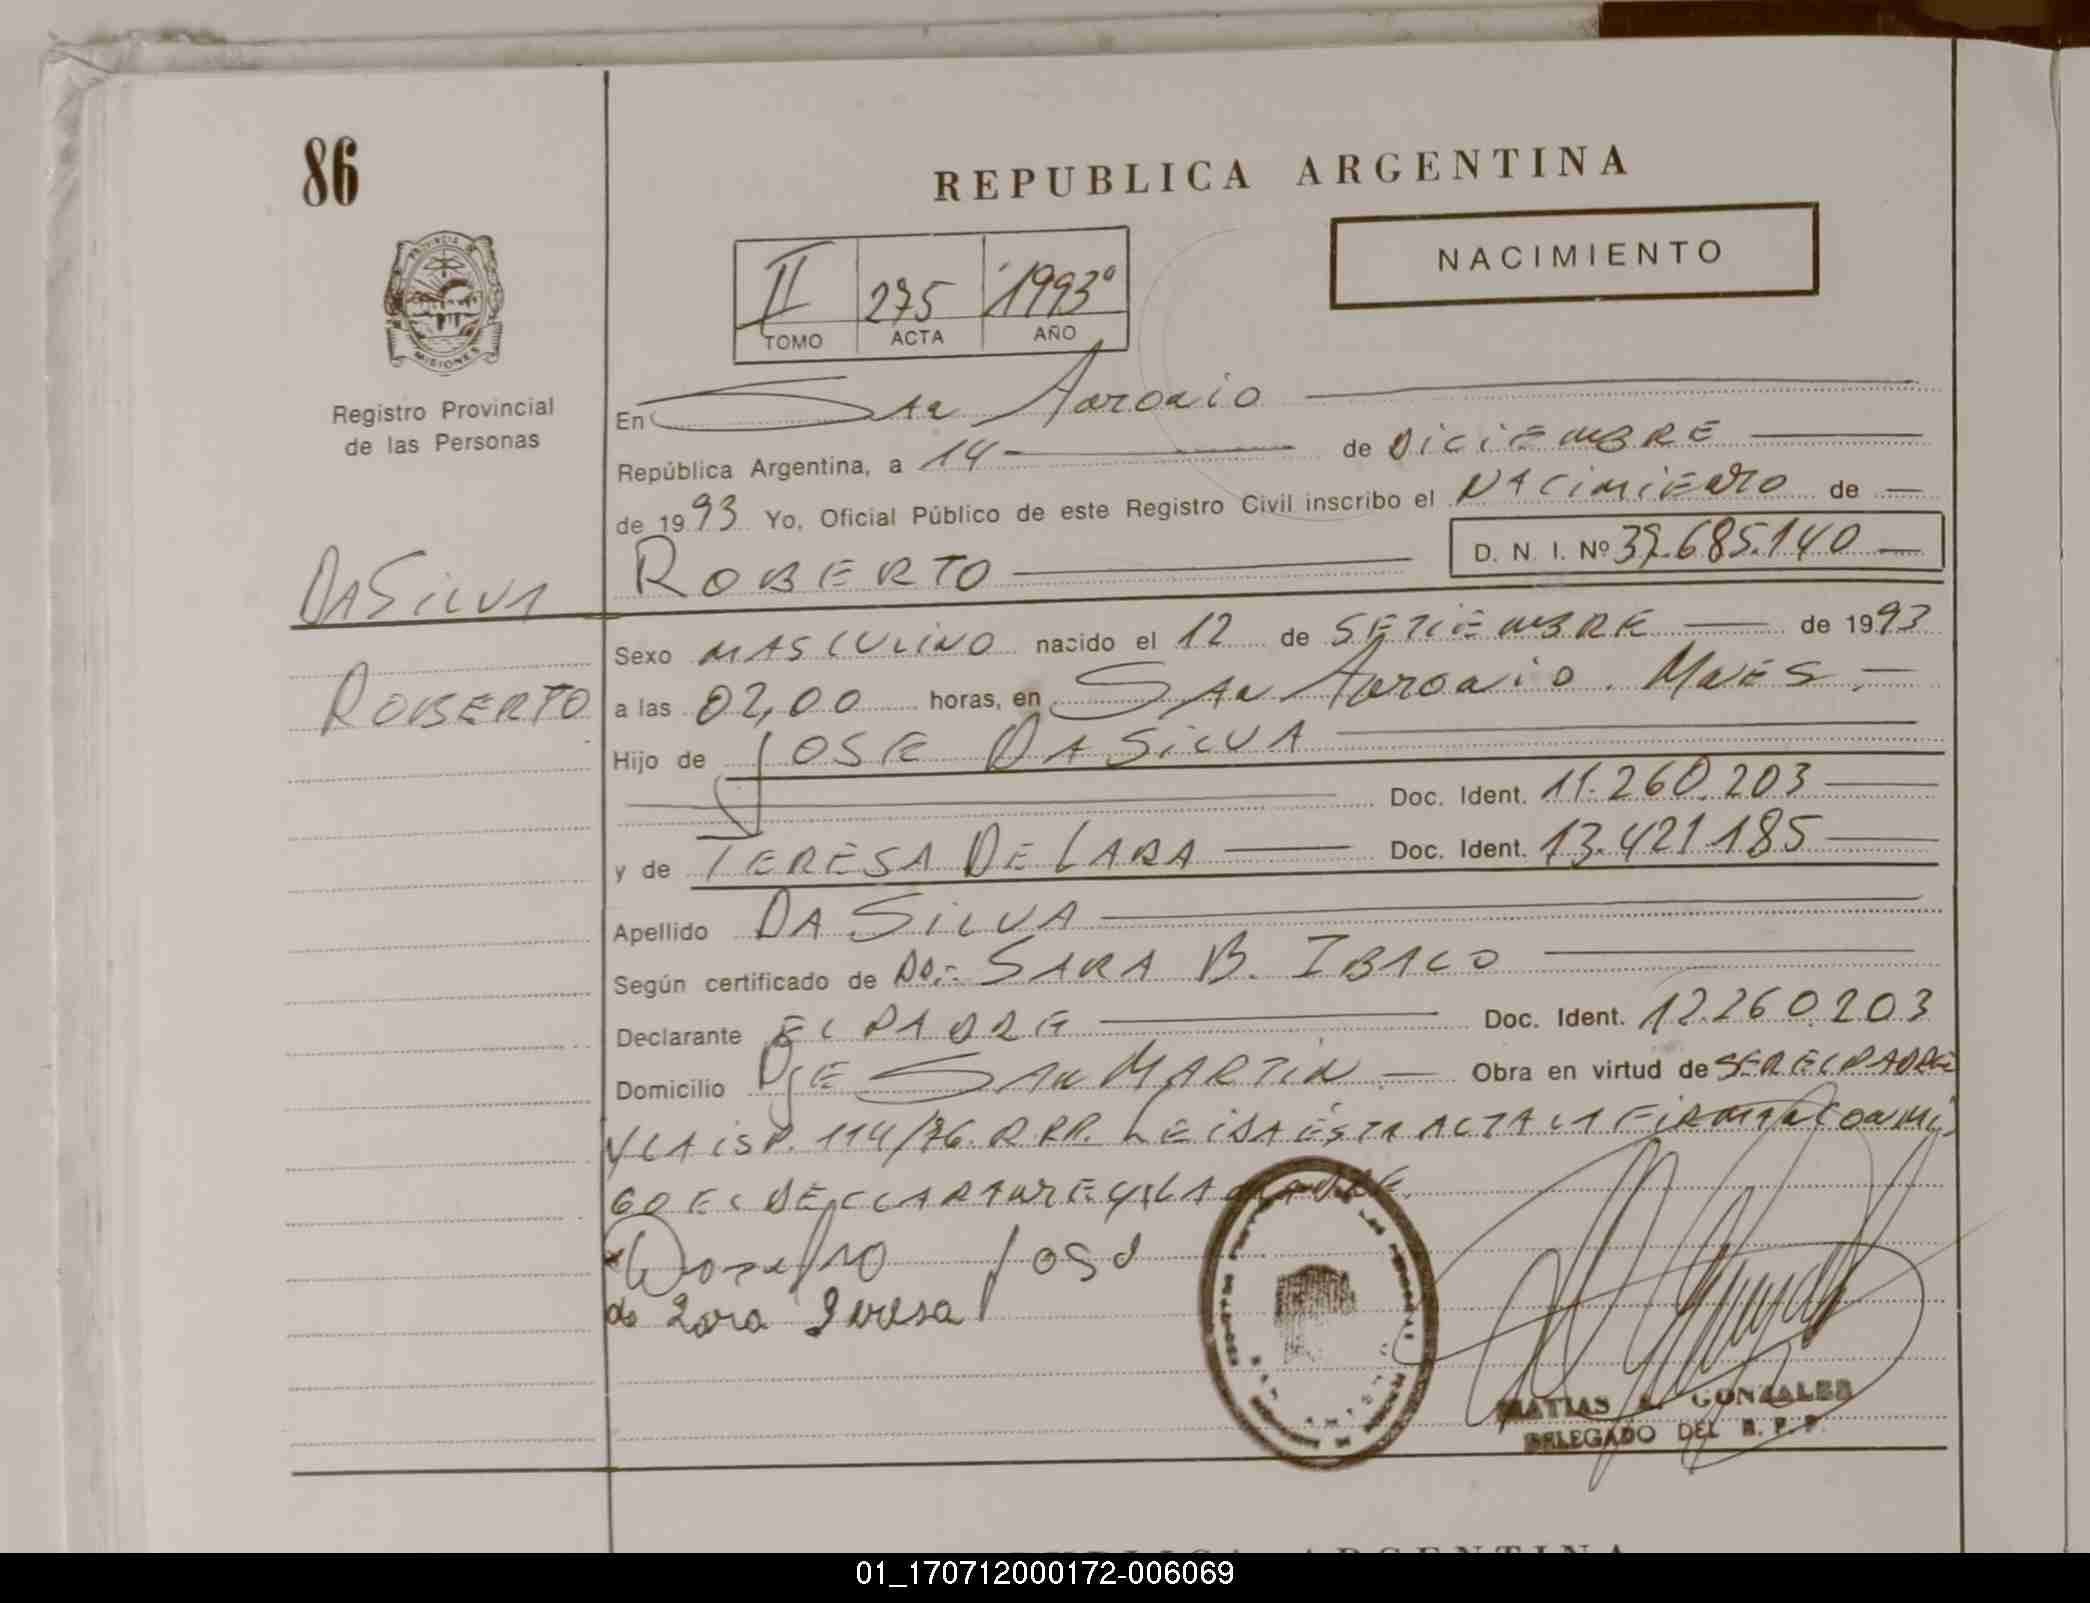 86
REPUBLICA ARGENTINA
NACIMIENTO
II 275 1993º
TOMO ACTA AÑO
PROVINCIA DE
MISIONES
Registro Provincial
de las Personas
En San Antonio
República Argentina, a 14 de DICIEMBRE
de 1993 Yo, Oficial Público de este Registro Civil inscribo el NACIMIENTO de
DA SILVA
ROBERTO
D. N. I. Nº 37.685.140
ROBERTO
Sexo MASCULINO nacido el 12 de SETIEMBRE de 1993
a las 02,00 horas, en San Antonio. Mnes.
Hijo de JOSE DA SILVA
Doc. Ident. 11.260.203
y de TERESA DE LARA Doc. Ident. 13.421.185
Apellido DA SILVA
Según certificado de DO.- SARA B. IBALO
Declarante EL PADRE Doc. Ident. 12.260.203
Domicilio Pje SAN MARTIN Obra en virtud de SER EL PADRE
Y LA DISP. 114/76. D RPP. LEIDA ESTA ACTA LA FIRMAN CONMI
GO EL DECLARANTE Y LA MADRE.
José
de Lara Teresa
MATIAS A. GONZALES
DELEGADO DEL R. P. P.
REPUBLICA ARGENTINA
01_170712000172-006069